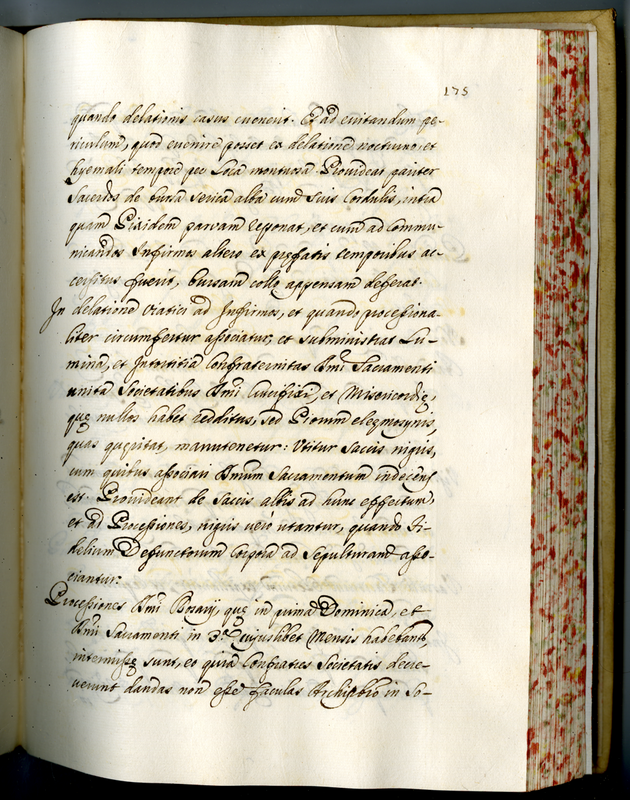 175
quando delationis casus euenerit. Et ad euitandum pe-
riculum, quod euenire posset ex delatione nocturno, et
hyemali tempore per loca montuosa Prouideat pariter
Sacerdos de bursa serica alba cum suis Cordulis, intra
quam Pixidem paruam reponat, et cum ad Commu-
nicandos Infirmos altero ex prefatis temporibus ac-
cersitus fuerit, bursam collo appensam deferat.
In delatione Viatici ad Infirmos, et quando processiona-
liter circumfertur associatur, et subministrat Lu-
mina, et Intortitia Confraternitas Smi Sacramenti
unita Societatibus Smi Crucifixi, et Misericordię,
quę nullos habet redditus, sed Piorum eleęmosynis,
quas quęritat, manutenetur: Utitur saccis nigris,
cum quibus associari Smum Sacramentum indecens
est. Prouideant de Saccis albis ad hunc effectum,
et ad Processiones, nigris uero utantur, quando Fi-
delium Defunctorum Corpora ad Sepulturam asso-
ciantur.
Processiones Smi Rosarij, quę in prima Dominica, et
Smi Sacramenti in 3.a Cujuslibet Mensis habebantur,
intermissę sunt, eo quia Confratres Societatis decre-
uerunt dandas non esse faculas Archipbro in So-